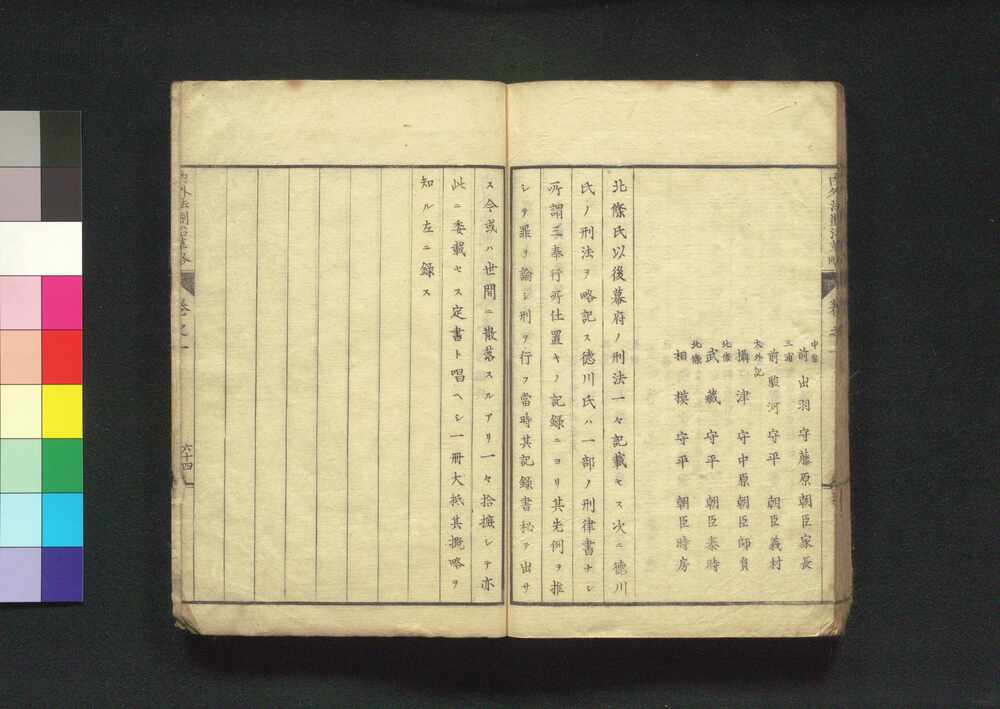 中条
前出羽守藤原朝臣家長
三浦
前駿河守平朝臣義村
大外記
攝津守中原朝臣師員
北條
武藏守平朝臣泰時
北條
相模守平朝臣時房
北條氏以後幕府ノ刑法一々記載セス次ニ德川
氏ノ刑法ヲ略記ス德川氏ハ一部ノ刑律書ナシ
所謂三奉行所仕置キノ記録ニヨリ其先例ヲ推
シテ罪ヲ論シ刑ヲ行フ當時其記録書秘テ出サ
ス今或ハ世間ニ散落スルアリ一々拾摭シテ亦
此ニ委載セス定書ト唱ヘシ一冊大抵其概略ヲ
知ル左ニ録ス
内外法制沿革略
卷之一
六十四